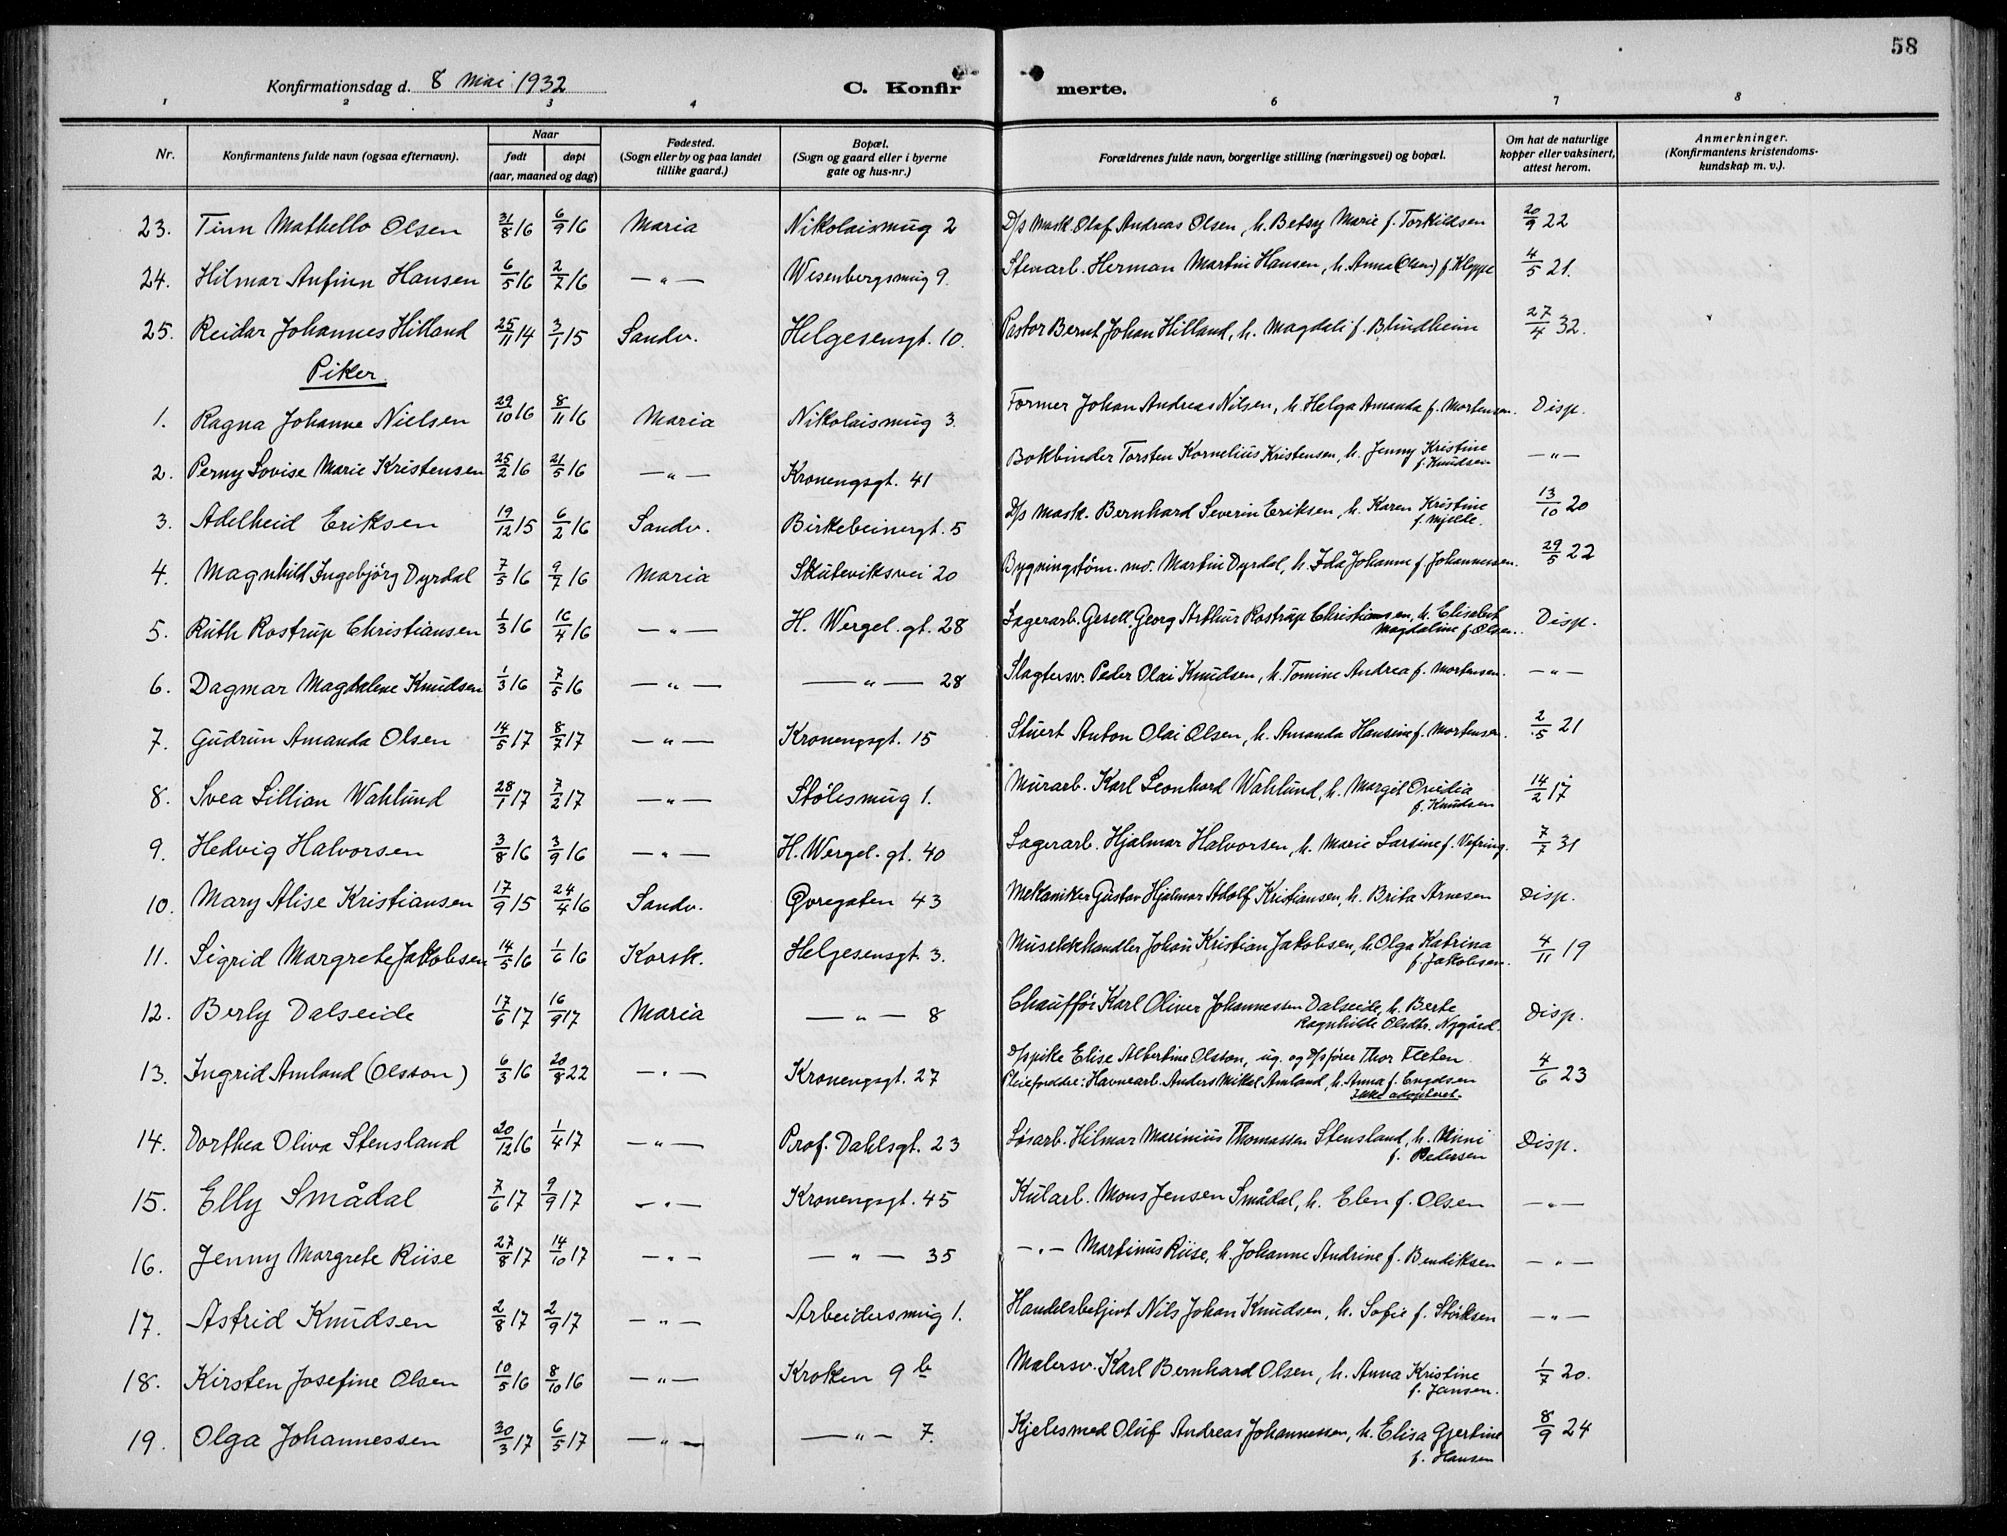 58
Konfirmationsdag d. 8 mai 1932 C. Konfir merte.
1 2 3 4 5 6 7 8
Nr. Konfirmantens fulde navn (ogsaa efternavn). Naar født døpt (aar, maaned og dag) Fødested. (Sogn eller by og paa landet tillike gaard.) Bopæl. (Sogn og gaard eller i byerne gate og hus-nr.) Forældrenes fulde navn, borgerlige stilling (næringsvei) og bopæl. Om hat de naturlige kopper eller vaksinert, attest herom. Anmerkninger. (Konfirmantens kristendomskundskap m. v.).
23. Finn Mathello Olsen 31/8 16 6/9 16 Maria Nikolaismug 2 D/s Mask. Olaf Andreas Olsen, h. Betsy Marie f. Torkildsen 20/9 22
24. Hilmar Anfinn Hansen 6/5 16 2/7 16 —"— Wesenbergsmug 9. Stenarb. Herman Martin Hansen, h. Anna (Olsen) f. Kleppe 4/5 21.
25. Reidar Johannes Hilland 25/11 14 3/1 15 Sandv. Helgesensgt. 10. Pastor Bernt Johan Hilland, h. Magdali f. Blindheim 27/4 32.
Piker.
1. Ragna Johanne Nielsen 29/10 16 8/11 16 Maria Nikolaismug 3. Former Johan Andreas Nilsen, h. Helga Amanda f. Mortensen. Disp.
2. Perny Lovise Marie Kristensen 25/2 16 21/5 16 —"— Kronengsgt. 41 Bokbinder Torsten Kornelius Kristensen, h. Jenny Kristine f. Knudsen —"—
3. Adelheid Eriksen 19/12 15 6/2 16 Sandv. Birkebeinergt. 5 D/s mask. Bernhard Severin Eriksen, h. Karen Kristine f. Mjelde. 13/10 20
4. Magnhild Ingebjörg Dyrdal 7/5 16 9/7 16 Maria Skuteviksvei 20 Bygningstøm. mo. Martin Dyrdal, h. Ida Johanne f. Johannessen. 29/5 22
5. Ruth Rostrup Christiansen 1/3 16 16/4 16 —"— H. Wergel. gt. 28 Lagerarb. Gesell Georg Arthur Rostrup Christiansen, h. Elisabeth Magdaline f. Olsen. Disp.
6. Dagmar Magdalene Knudsen 1/3 16 7/5 16 —"— —"— 28 Slagtersv. Peder Olai Knudsen, h. Tomine Andrea f. Mortensen. —"—
7. Gudrun Amanda Olsen 14/5 17 8/7 17 —"— Kronengsgt. 15 Stuert Anton Olai Olsen, h. Amanda Hansine f. Mortensen. 2/5 21
8. Svea Lillian Wahlund 28/1 17 7/2 17 —"— Stølesmug 1. Murarb. Karl Leonhard Wahlund, h. Margit Ovidia f. Knudsen 14/2 17
9. Hedvig Halvorsen 3/8 16 3/9 16 —"— H. Wergel. gt. 40 Lagerarb. Hjalmar Halvorsen, h. Marie Larsine f. Vefring. 7/7 31
10. Mary Alise Kristiansen 17/9 15 24/4 16 Sandv. Øvregaten 43 Mekaniker Gustav Hjalmar Adolf Kristiansen, h. Brita Arnesen Disp.
11. Sigrid Margrete Jakobsen 14/5 16 1/6 16 Korsk. Helgesensgt. 3. Musikkhandler Johan Kristian Jakobsen, h. Olga Katrina f. Jakobsen. 4/11 19
12. Berly Dalseide 17/6 17 16/9 17 Maria —"— 8 Chauffør Karl Oliver Johannessen Dalseide, h. Berte Ragnhilde Olsdtr. Nygård. Disp.
13. Ingrid Amland (Olsson) 6/3 16 20/8 22 —"— Kronengsgt. 27 D/spike Elise Albertine Olsson, ug. og D/sfører Thor Fleten. Pleieforeldre: Havnearb. Anders Mikal Amland, h. Anna f. Engdsen Ikke adopteret. 4/6 23
14. Dorthea Oliva Stensland 20/12 16 1/4 17 —"— Prof. Dahlsgt. 23 Løsarb. Hilmar Marinius Thomassen Stensland, h. Minni f. Pedersen Disp.
15. Elly Smådal 7/6 17 9/9 17 —"— Kronengsgt. 45 Kularb. Mons Jensen Smådal, h. Elen f. Olsen —"—
16. Jenny Margrete Riise 27/8 17 14/10 17 —"— —"— 35 —"— Martinus Riise, h. Johanne Andrine f. Bendiksen —"—
17. Astrid Knudsen 2/8 17 2/9 17 —"— Arbeidersmug 1. Handelsbetjent Nils Johan Knudsen, h. Sofie f. Störksen —"—
18. Kirsten Josefine Olsen 10/5 16 8/10 16 —"— Kroken 9 b Malersv. Karl Bernhard Olsen, h. Anna Kristine f. Jansen. 1/7 20.
19. Olga Johannessen 30/3 17 6/5 17 —"— —"— 7. Kjelesmed Oluf Andreas Johannessen, h. Elisa Gjertine f. Hansen 8/9 24